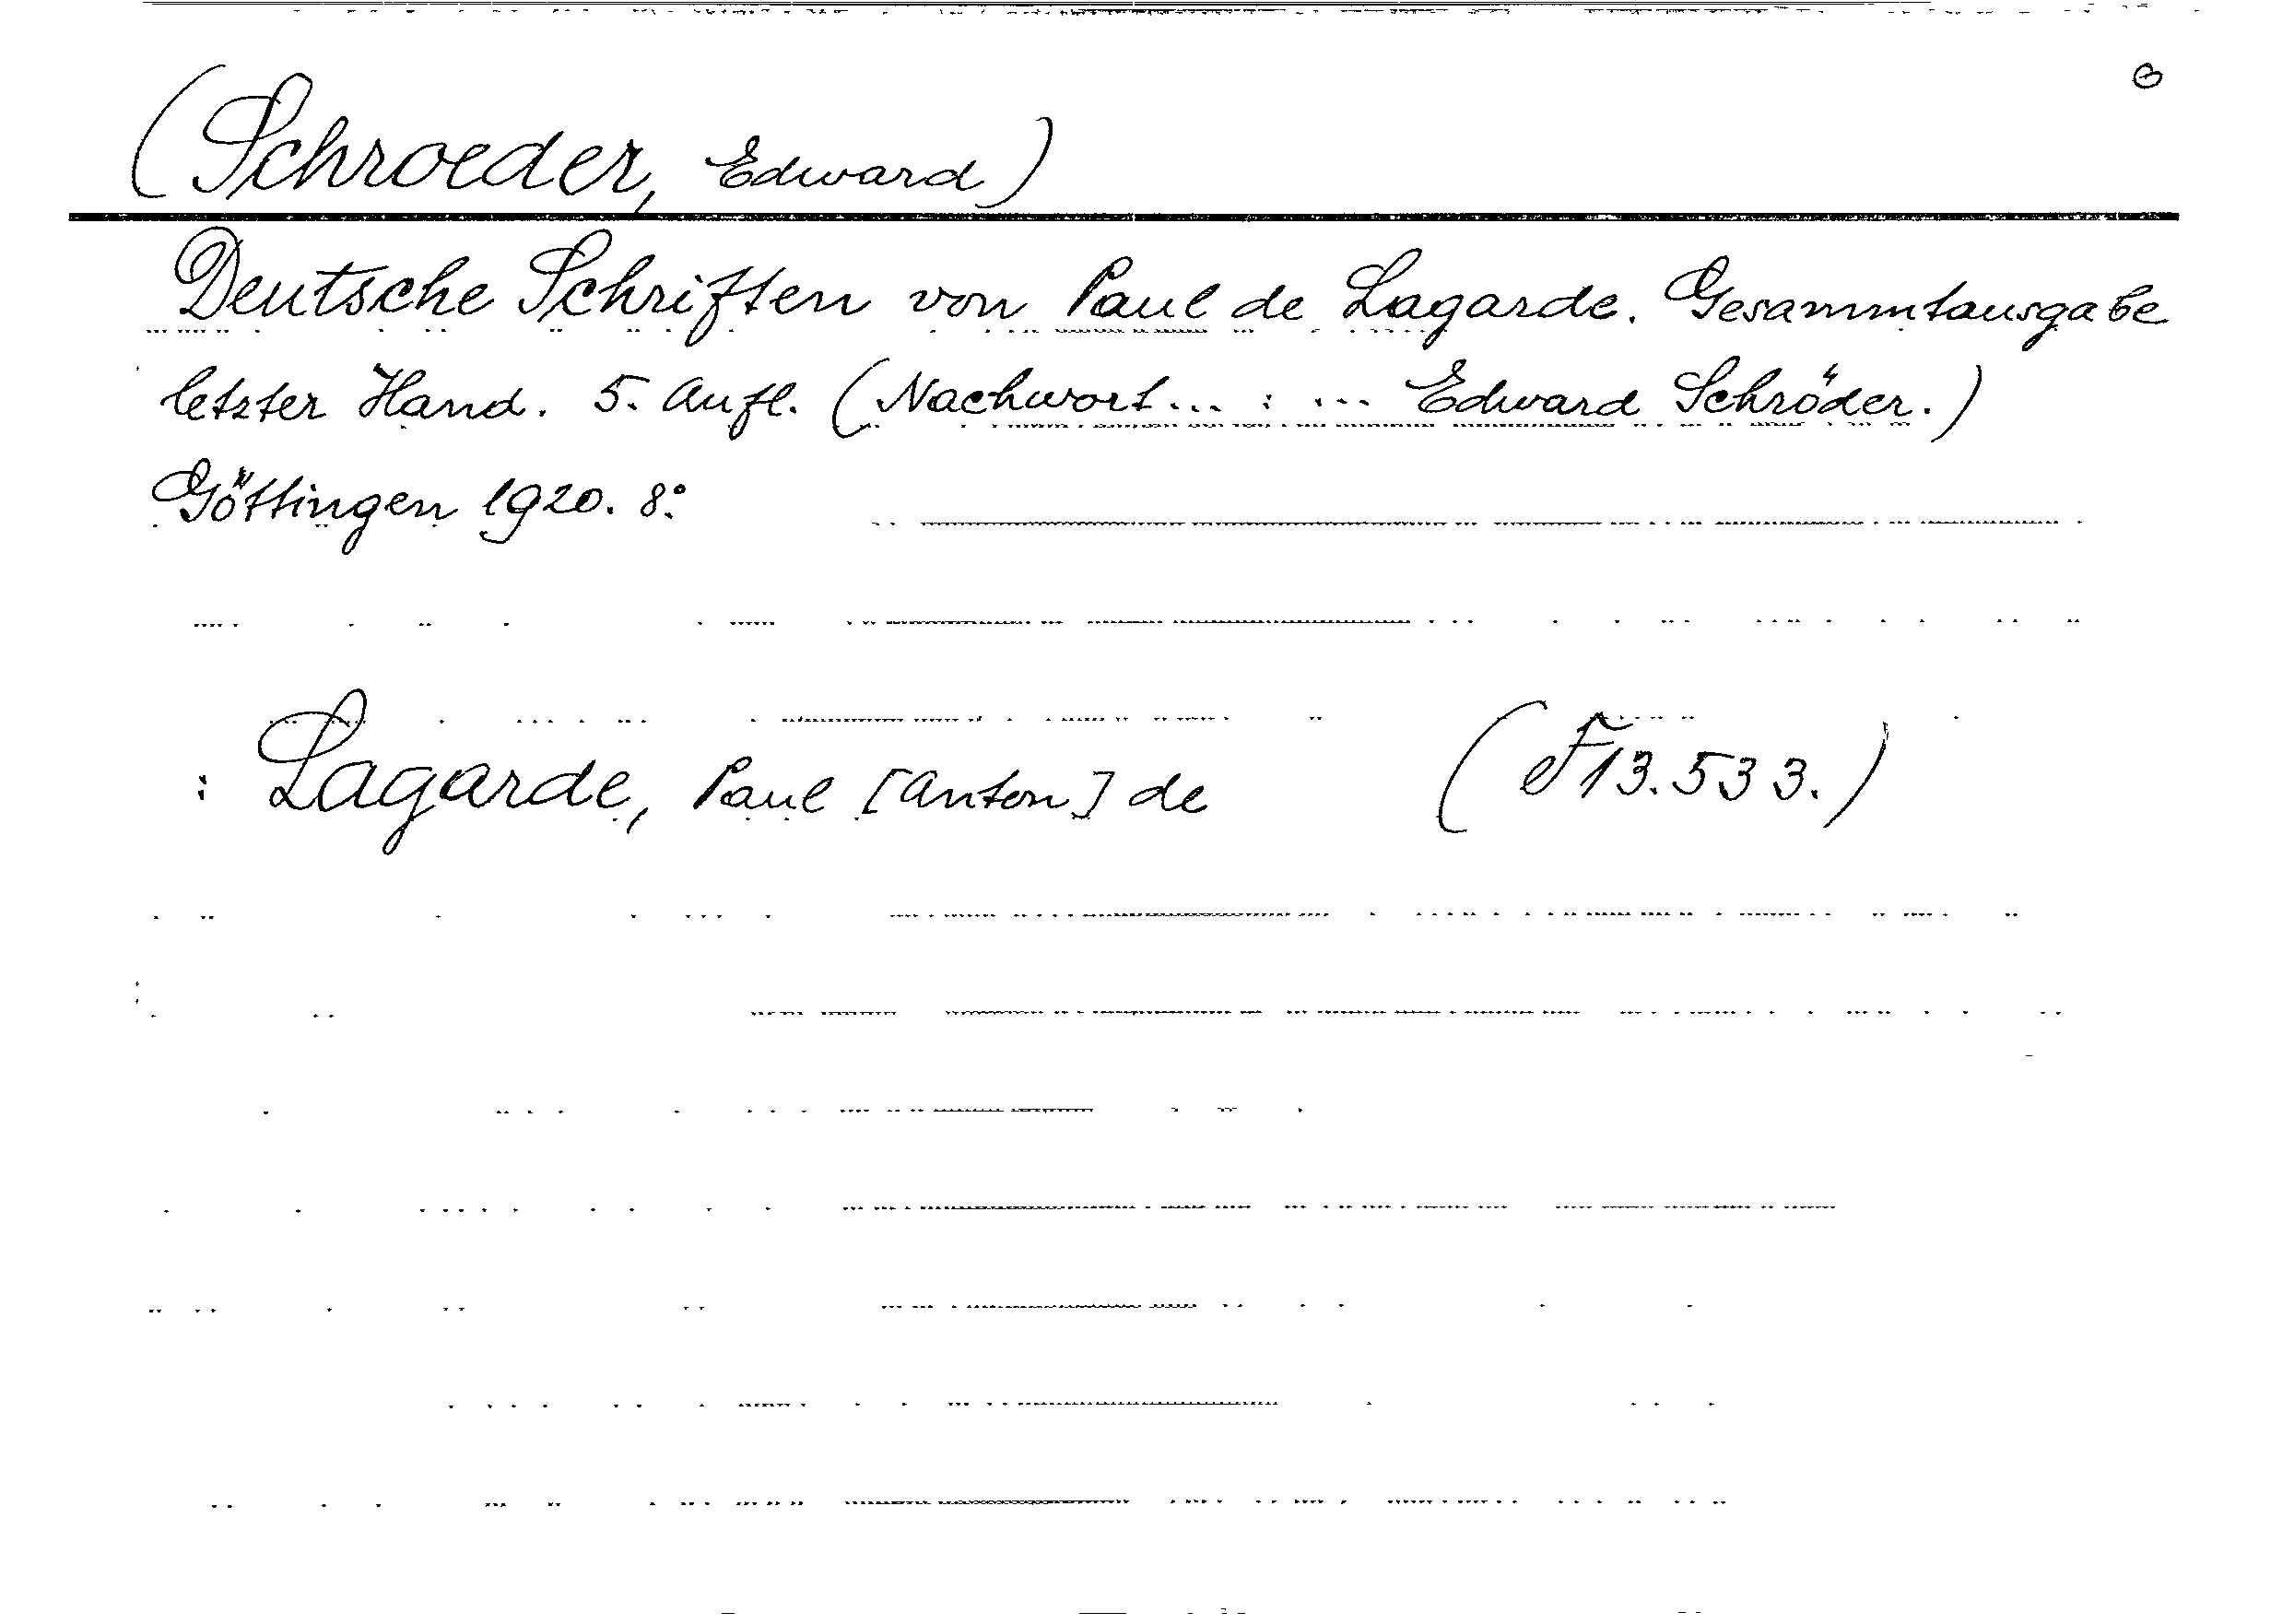 (Schroeder, Edward)
Deutsche Schriften von Paul de Lagarde. Gesammtausgabe
letzter Hand. 5. Aufl. (Nachwort... : ... Edward Schröder.)
Göttingen 1920. 8.°
: Lagarde, Paul [Anton] de (F13.533.)